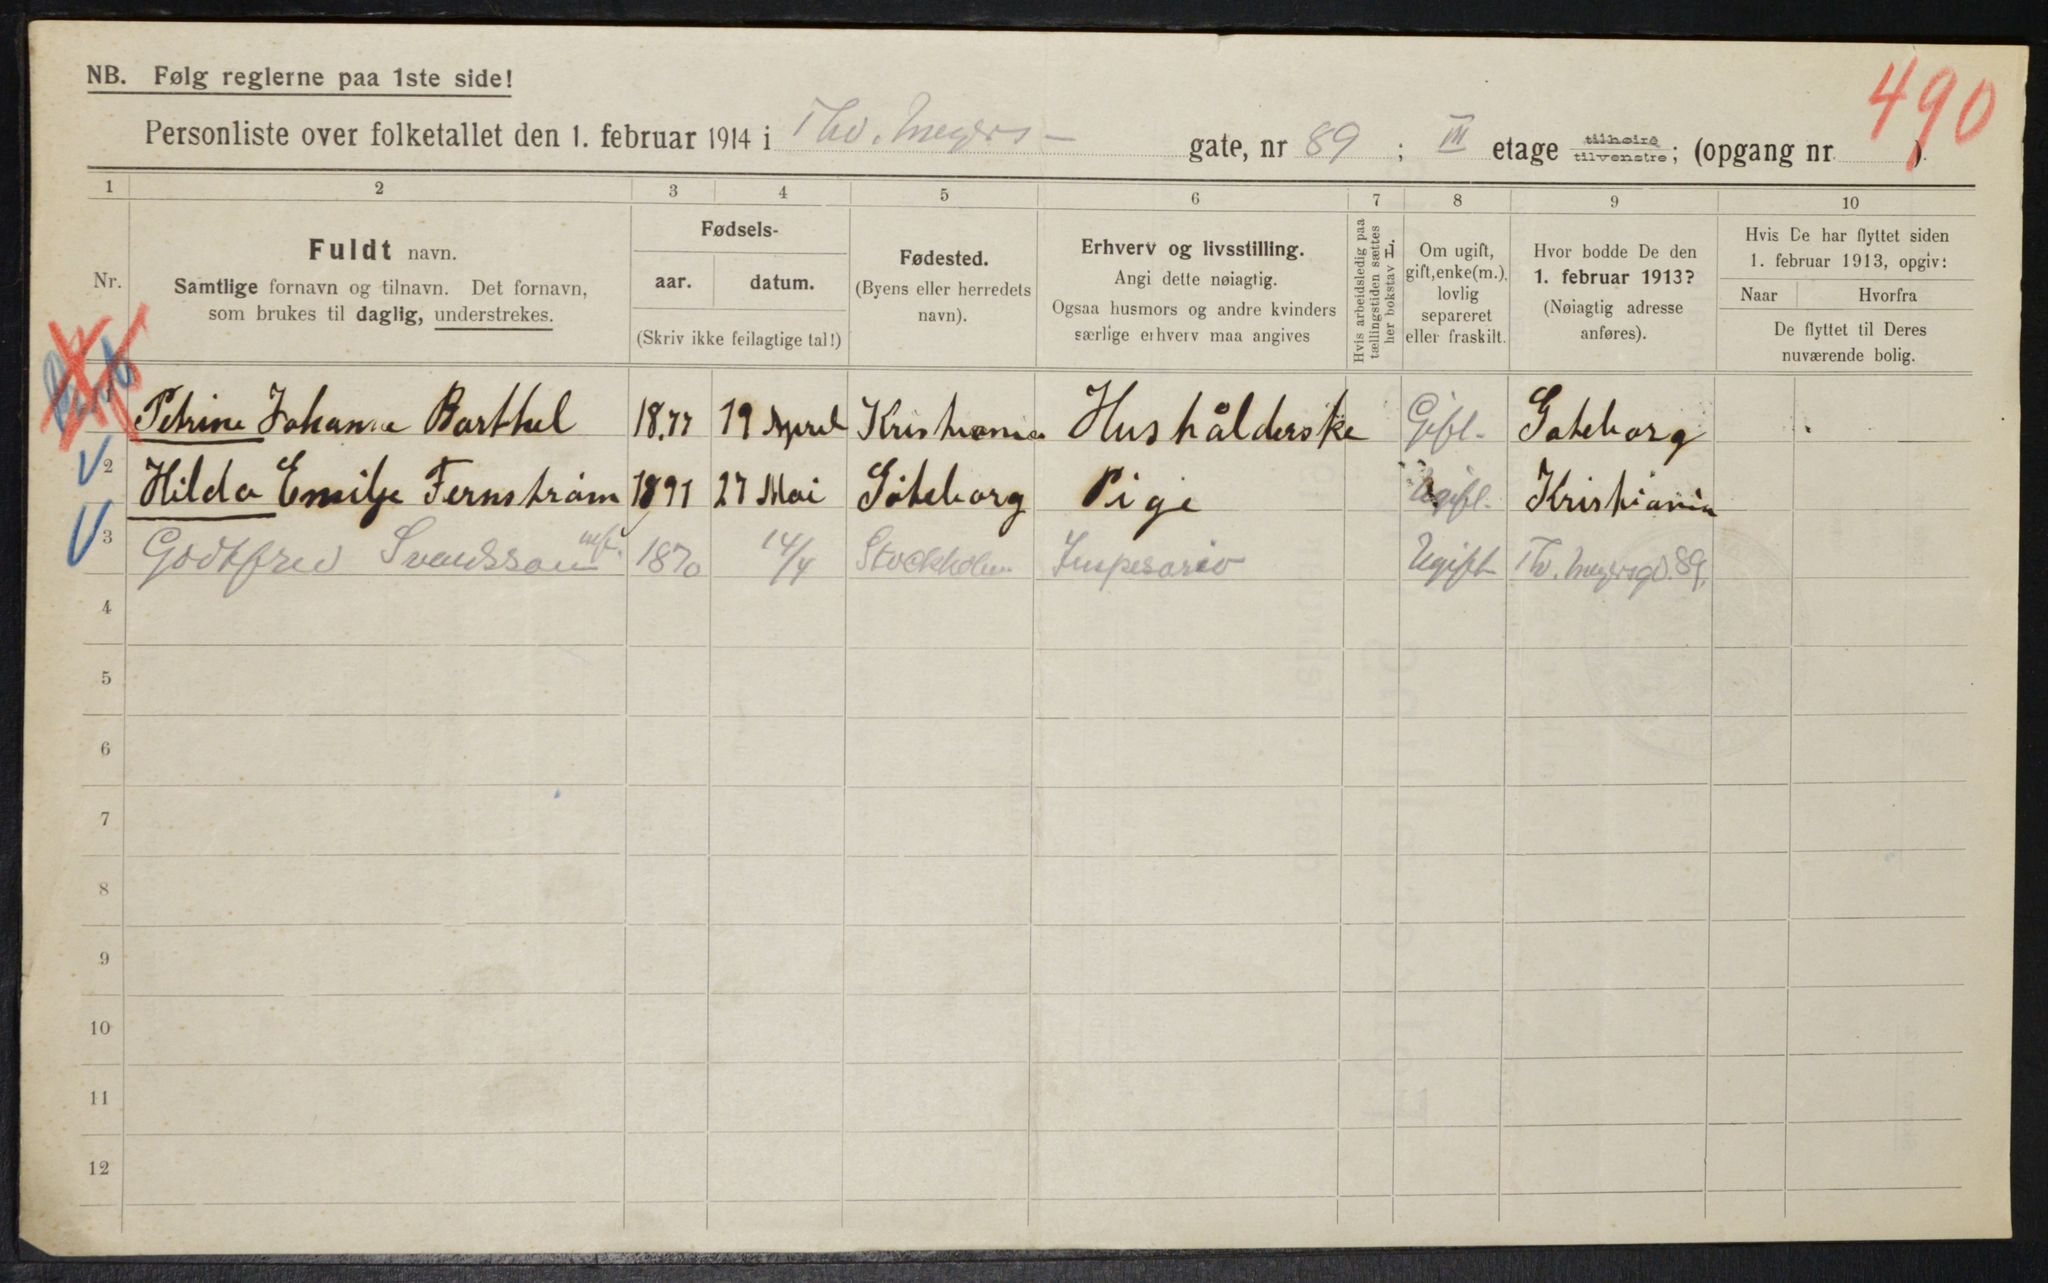 NB. Følg reglerne paa 1ste side!
490
Personliste over folketallet den 1. februar 1914 i Thv. Meyers - gate, nr 89 ; III etage tilhøire tilvenstre; (opgang nr ).
1 2 3 4 5 6 7 8 9 10
Nr.
Fuldt navn.
Samtlige fornavn og tilnavn. Det fornavn,
som brukes til daglig, understrekes.
Fødsels-
aar. datum.
(Skriv ikke feilagtige tal!)
Fødested.
(Byens eller herredets
navn).
Erhverv og livsstilling.
Angi dette nøiagtig.
Ogsaa husmors og andre kvinders
særlige erhverv maa angives
Hvis arbeidsledig paa
tællingstiden sættes
her bokstav L.
Om ugift,
gift, enke(m.),
lovlig
separeret
eller fraskilt.
Hvor bodde De den
1. februar 1913?
(Nøiagtig adresse
anføres).
Hvis De har flyttet siden
1. februar 1913, opgiv:
Naar Hvorfra
De flyttet til Deres
nuværende bolig.
Petrine Johanne Barthel 1877 19 April Kristiania Hushålderske Gift. Goteborg
2 Hilda Emilje Fernstrøm 1891 27 Mai Göteborg Pige Ugift. Kristiania
3 Godtfred Svendsson 1870 14/4 Stockholm Impesario Ugift Thv. Meyersgd. 89.
4
5
6
7
8
9
10
11
12